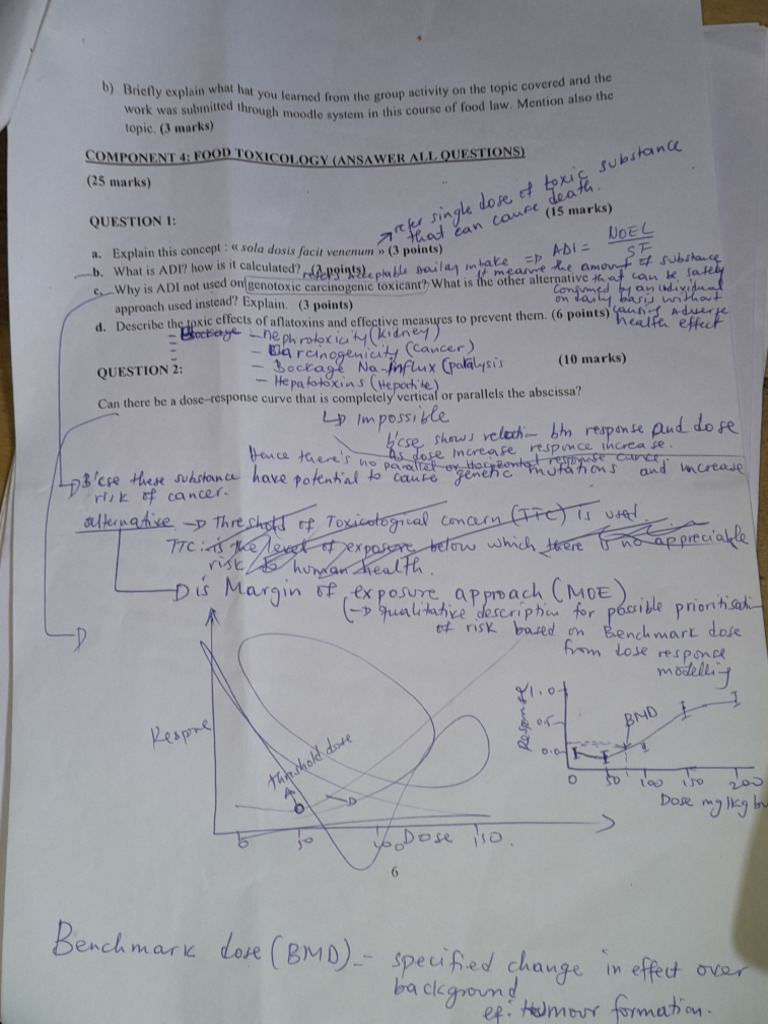 b) Briefly explain what hat you learned from the group activity on the topic covered and the
work was submitted through moodle system in this course of food law. Mention also the
topic. (3 marks)
COMPONENT 4: FOOD TOXICOLOGY (ANSAWER ALL QUESTIONS)
(25 marks)
refer single dose of toxic substance
that can cause death.
QUESTION 1:
(15 marks)
a. Explain this concept : « sola dosis facit venenum » (3 points)
b. What is ADI? how is it calculated? (3 points)
refers Acceptable Dailay intake => ADI = NOEL
SF
It measure the amount of substance
that can be safely
consumed by an individual
on daily basis without
causing adverse
health effect
c. Why is ADI not used on genotoxic carcinogenic toxicant? What is the other alternative
approach used instead? Explain. (3 points)
d. Describe the toxic effects of aflatoxins and effective measures to prevent them. (6 points)
- Bockage - nephrotoxicity (kidney)
- Carcinogenicity (cancer)
- Bockage Na-influx (paralysis
- Hepatotoxins (Hepatite)
QUESTION 2:
(10 marks)
Can there be a dose–response curve that is completely vertical or parallels the abscissa?
↳ Impossible
b'cse shows relection btn response and dose
As dose increase responce increase.
Hence there's no parallel or Horizontal response curve.
B'cse these substance have potential to cause genetic mutations and increase
risk of cancer.
alternative → Threshold of Toxicological concern (TTC) is used.
TTC: is the level of exposure below which there is no appreciable
risk to human health.
is Margin of exposure approach (MOE)
(→ qualitative description for possible prioritisation
of risk based on Benchmark dose
from dose response
modelling
Respne
threshold dose
0 50 100 Dose 150.
Response
1.0
0.5
0.0
BMD
0 50 100 150 200
Dose mg/kg bw
6
Benchmark dose (BMD) - specified change in effect over
background
eg: tumour formation.